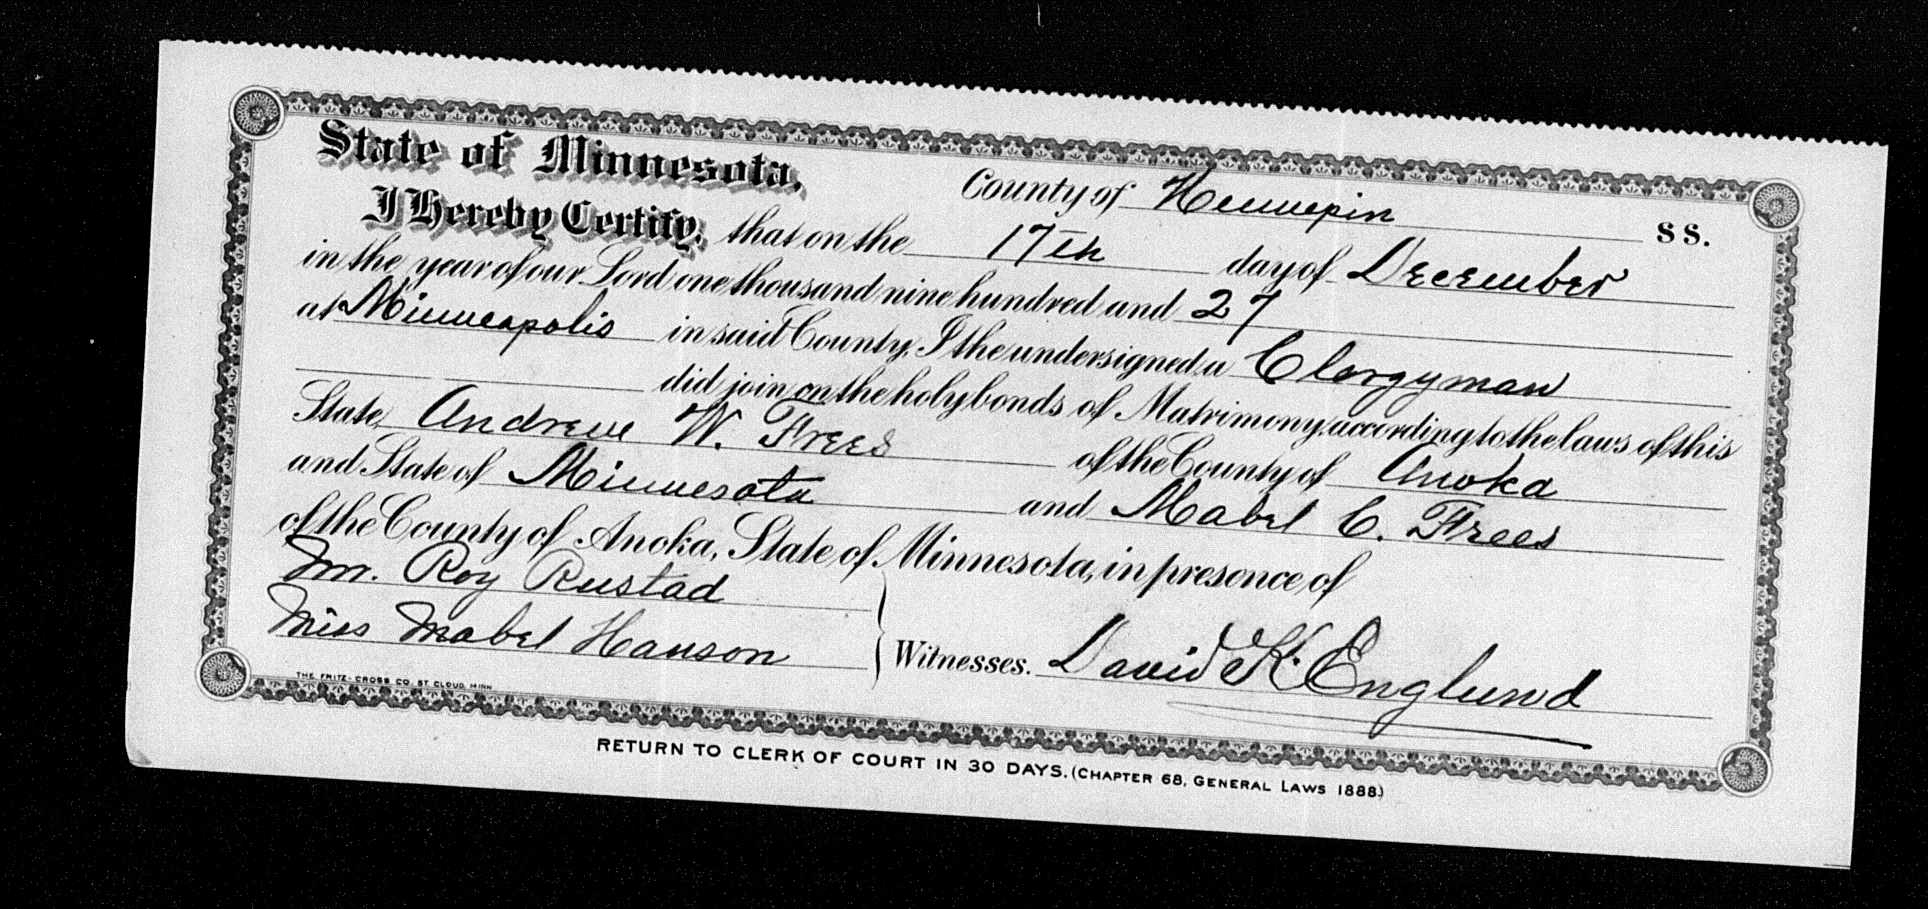 State of Minnesota, County of Hennepin SS.
I Hereby Certify, that on the 17th day of December
in the year of our Lord one thousand nine hundred and 27
at Minneapolis in said County, I the undersigned a Clergyman
did join on the holy bonds of Matrimony, according to the laws of this
State, Andrew W. Frees of the County of Anoka
and State of Minnesota and Mabel C. Frees
of the County of Anoka, State of Minnesota, in presence of
Mr. Roy Rustad
Miss Mabel Hanson Witnesses. David K. Englund
THE FRITZ-CROSS CO. ST. CLOUD, MINN
RETURN TO CLERK OF COURT IN 30 DAYS. (CHAPTER 68, GENERAL LAWS 1888)